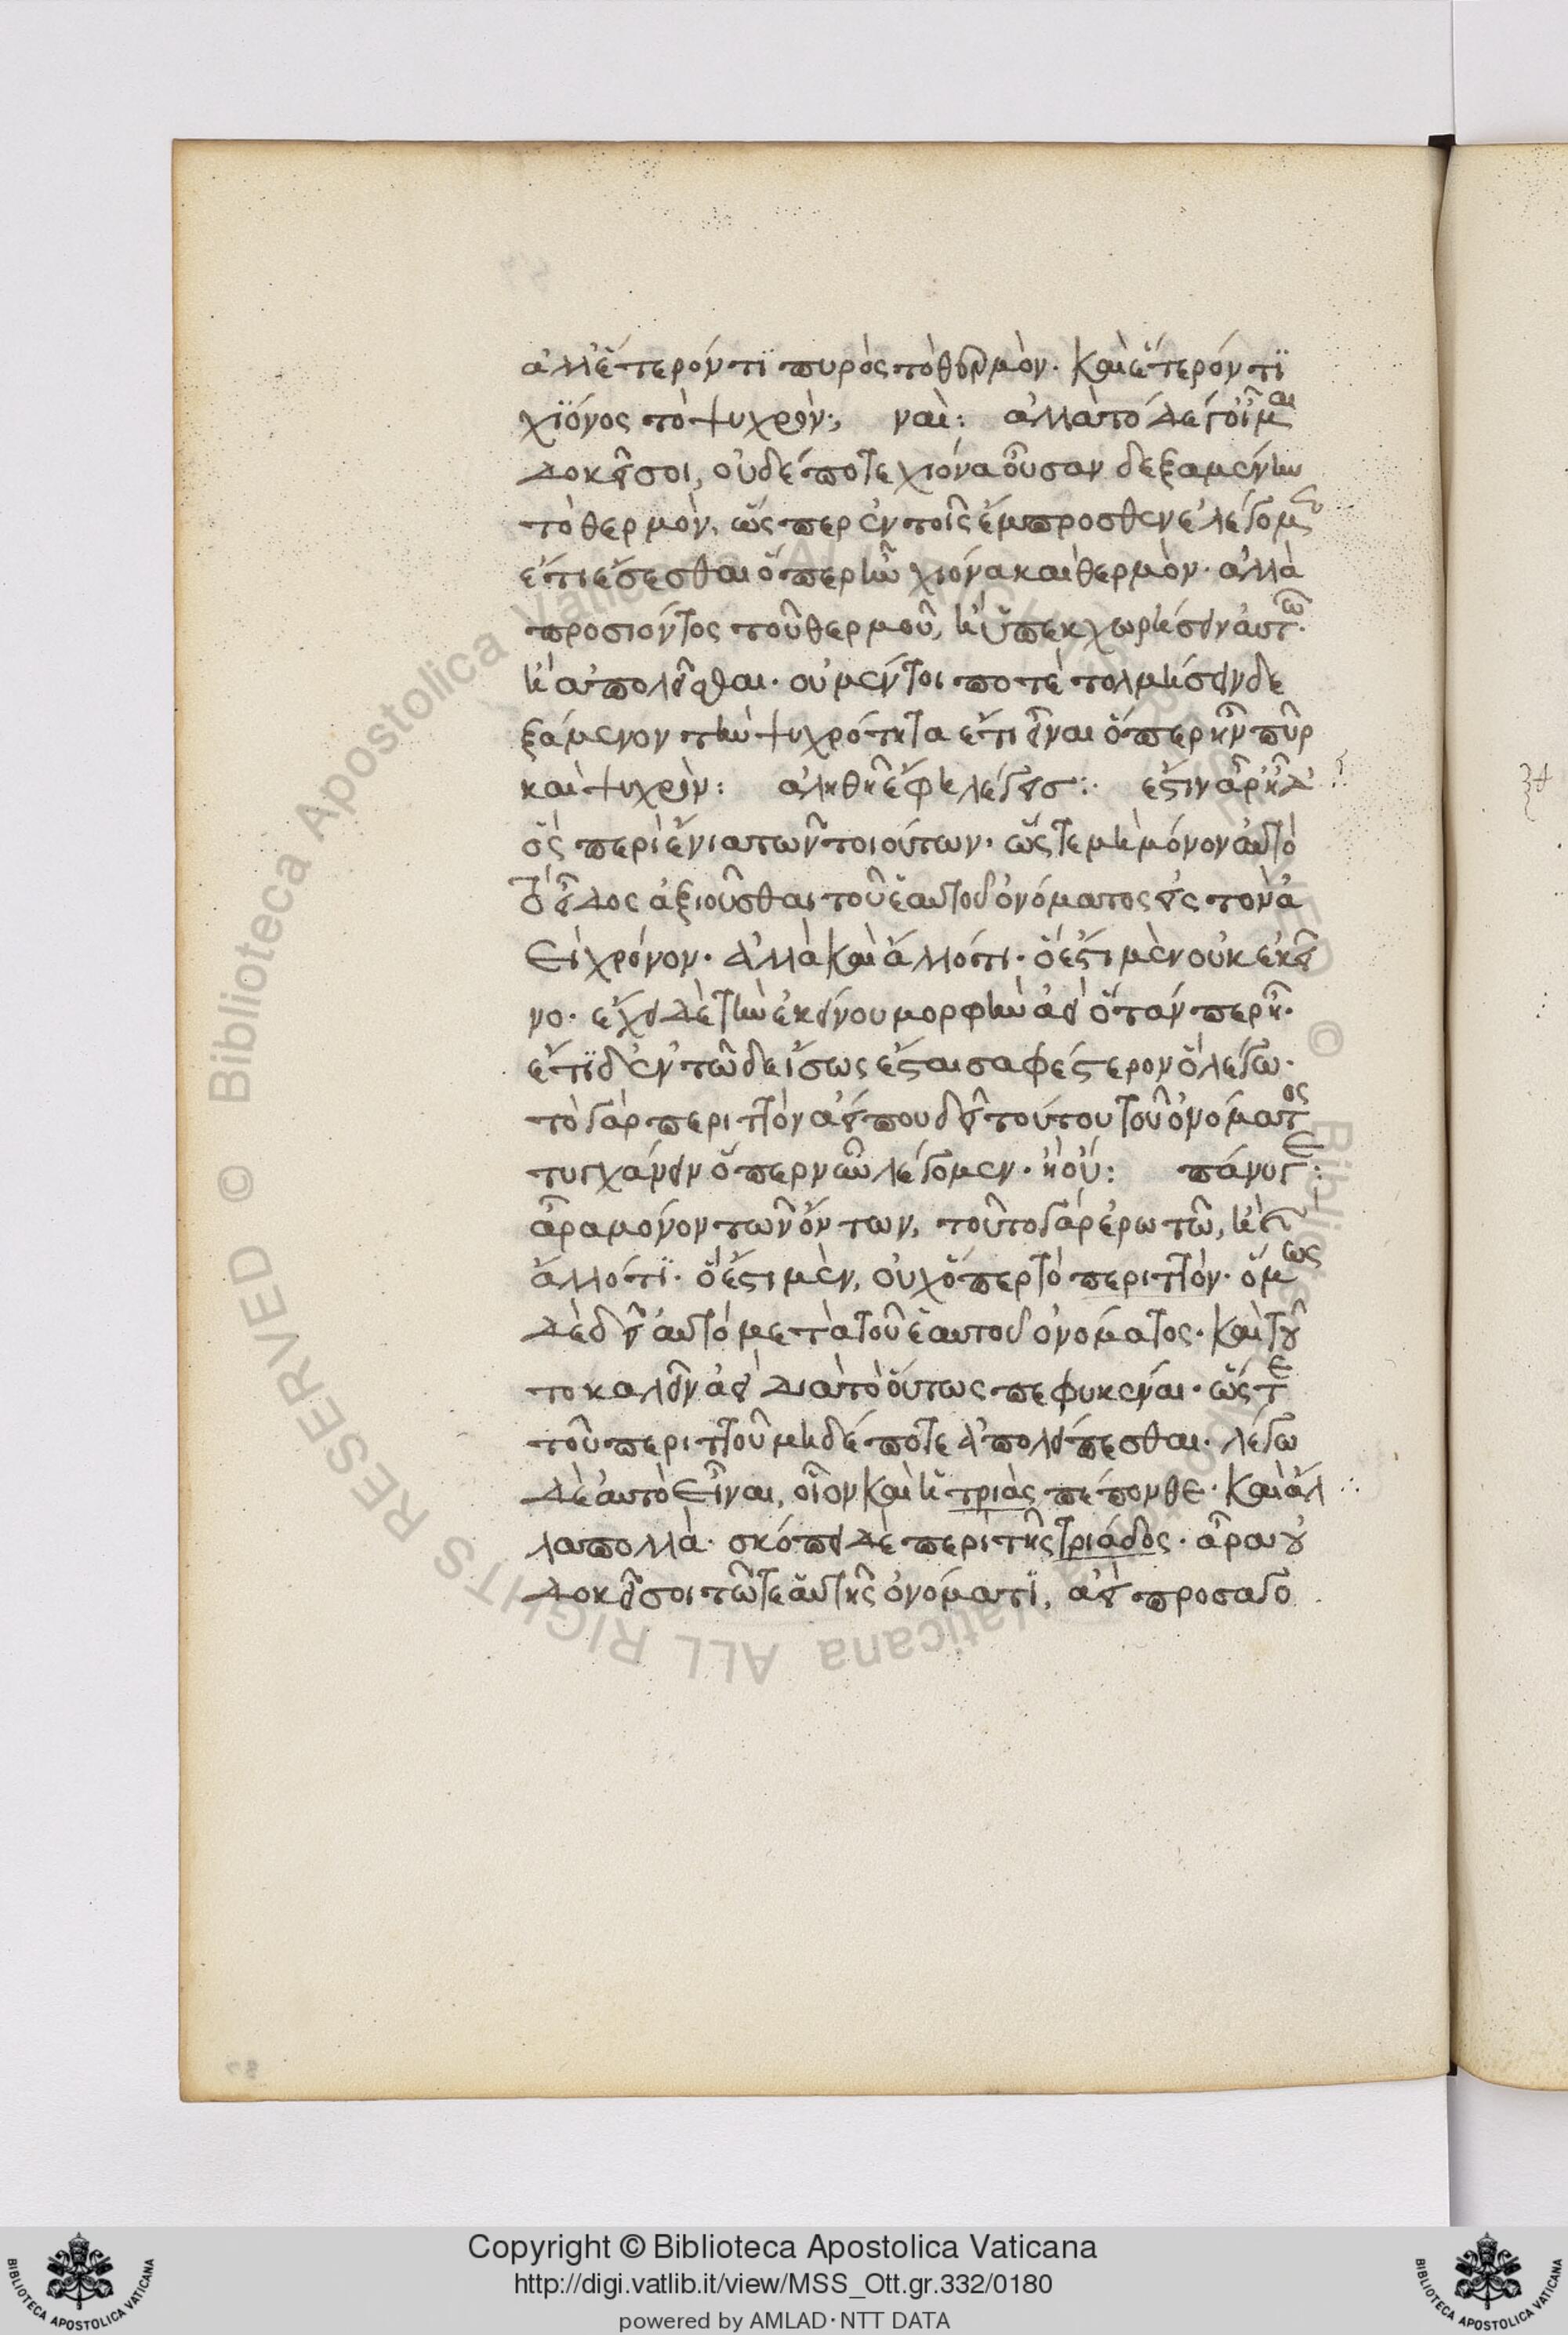 ἀλλ' ἕτερόν τι πυρὸς τὸ θερμὸν. καὶ ἕτερόν τι
χιόνος τὸ ψυχρὸν; ναὶ: ἀλλὰ τό δε γ' οἶμαι
δοκεῖ σοι, οὐδέποτε χιόνα οὖσαν δεξαμένην
τὸ θερμὸν, ὥσπερ ἐν τοῖς ἔμπροσθεν ἐλέγομεν
ἔτι ἔσεσθαι ὅπερ ἦν χιόνα καὶ θερμὸν. ἀλλὰ
προσιόντος τοῦ θερμοῦ, ἢ ὑπεκχωρήσειν αὐτῶ.
ἢ ἀπολεῖσθαι. οὐ μέντοι ποτὲ τολμήσειν δε
ξάμενον τὴν ψυχρότητα ἔτι εἶναι ὅπερ ἦν πῦρ
καὶ ψυχρὸν: ἀληθῆ ἔφη λέγεις: ἔστιν ἄρ' ἦ δ'
ὃς περὶ ἔνια τῶν τοιούτων. ὥστε μὴ μόνον αὐτὸ
τὸ εἶδος ἀξιοῦσθαι τοῦ ἑαυτοῦ ὀνόματος εἰς τὸν ἀ
εὶ χρόνον. ἀλλὰ καὶ ἄλλό τι. ὃ ἔστι μὲν οὐκ ἐκεῖ
νο. ἔχει δὲ τὴν ἐκείνου μορφὴν ἀεὶ ὅταν περ ἦ.
ἔτι δ' ἐν τῶδε ἴσως ἔσται σαφέστερον ὃ λέγω.
τὸ γὰρ περιττὸν ἀεί που δεῖ τούτου τοῦ ὀνόματος
τυγχάνειν ὅπερ νῦν λέγομεν. ἢ οὔ: πάνυ γε:
ἆρα μόνον τῶν ὄντων, τοῦτο γὰρ ἐρωτῶ, ἢ καὶ
ἄλλό τι. ὃ ἔστι μὲν, οὐχ ὅπερ τὸ περιττὸν. ὅμως
δὲ δεῖ αὐτὸ μετὰ τοῦ ἑαυτοῦ ὀνόματος. καὶ τοῦ
το καλεῖν ἀεὶ διὰ τὸ οὕτως πεφυκέναι. ὥστε
τοῦ περιττοῦ μηδέποτε ἀπολείπεσθαι. λέγω
δὲ αὐτὸ εἶναι, οἷον καὶ ἡ τριὰς πέπονθε. καὶ ἄλ
λα πολλὰ. σκόπει δὲ περὶ τῆς τριάδος. ἆρα οὐ
δοκεῖ σοι τῶ τε αὑτῆς ὀνόματι, ἀεὶ προσαγο
Copyright © Biblioteca Apostolica Vaticana
http://digi.vatlib.it/view/MSS_Ott.gr.332/0180
powered by AMLAD·NTT DATA